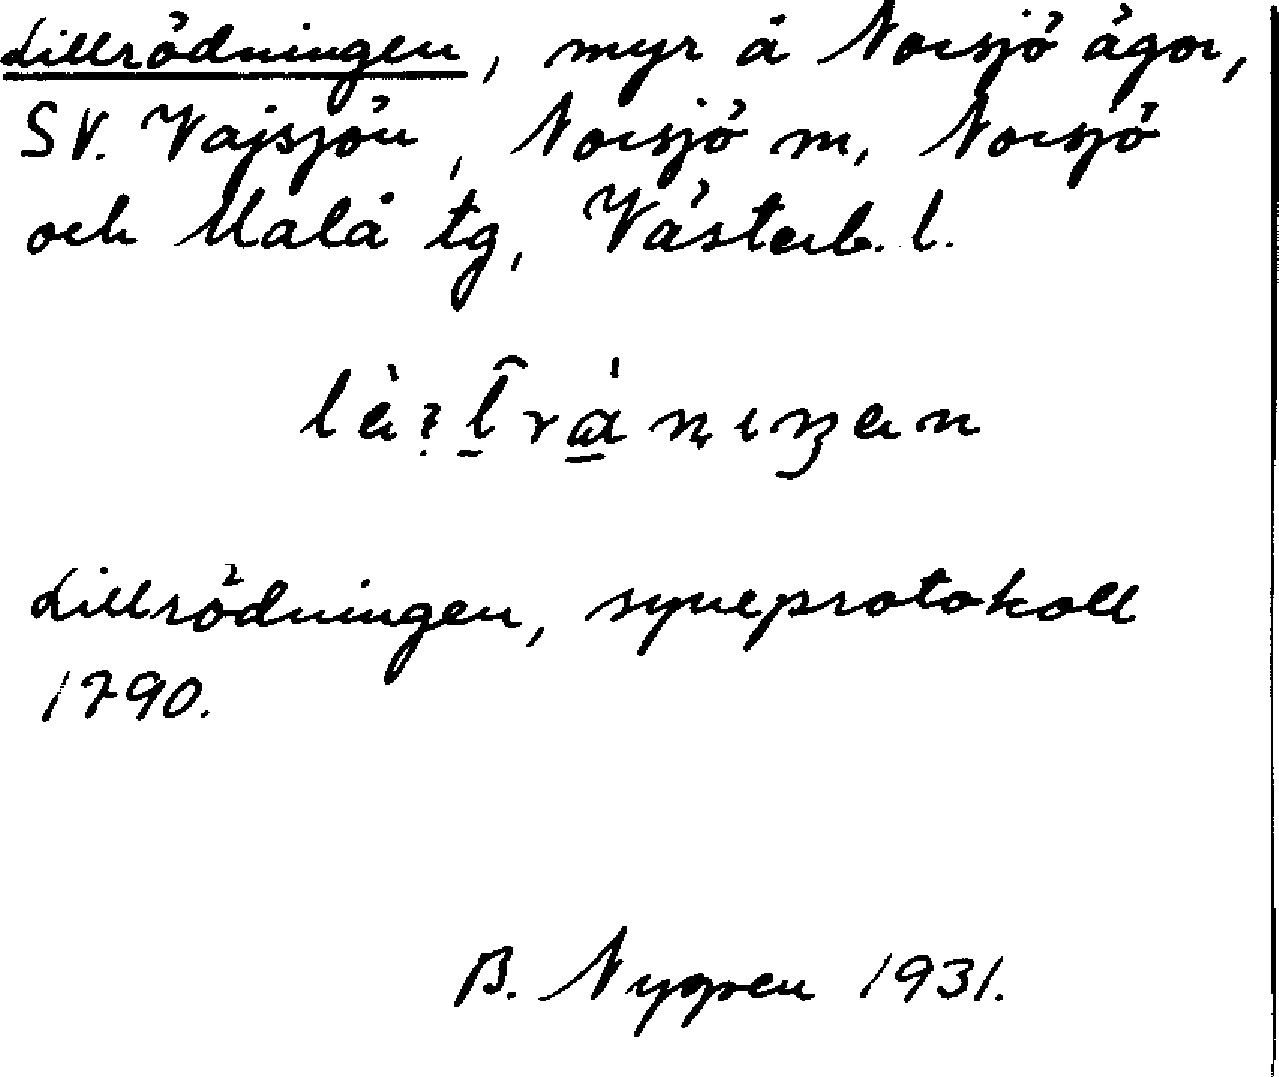 Lillrödningen, myr å Norsjö ägor,
SV. Vajsjön, Norsjö m, Norsjö
och Malå tg, Västerb. l.
Lillrödningen, syneprotokoll
1790.
B. Nygren 1931.